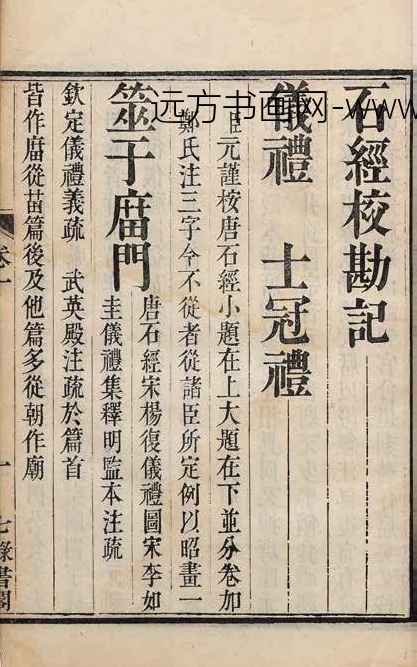 石經校勘記
儀禮 士冠禮
臣元謹桉唐石經小題在上大題在下並分卷加
鄭氏注三字今不從者從諸臣所定例以昭畫一
筮于庿門
唐石經宋楊復儀禮圖宋李如
圭儀禮集釋明監本注疏
欽定儀禮義疏 武英殿注疏於篇首
皆作庿從苗篇後及他篇多從朝作廟
卷一
一
七錄書閣
远方书画网-www